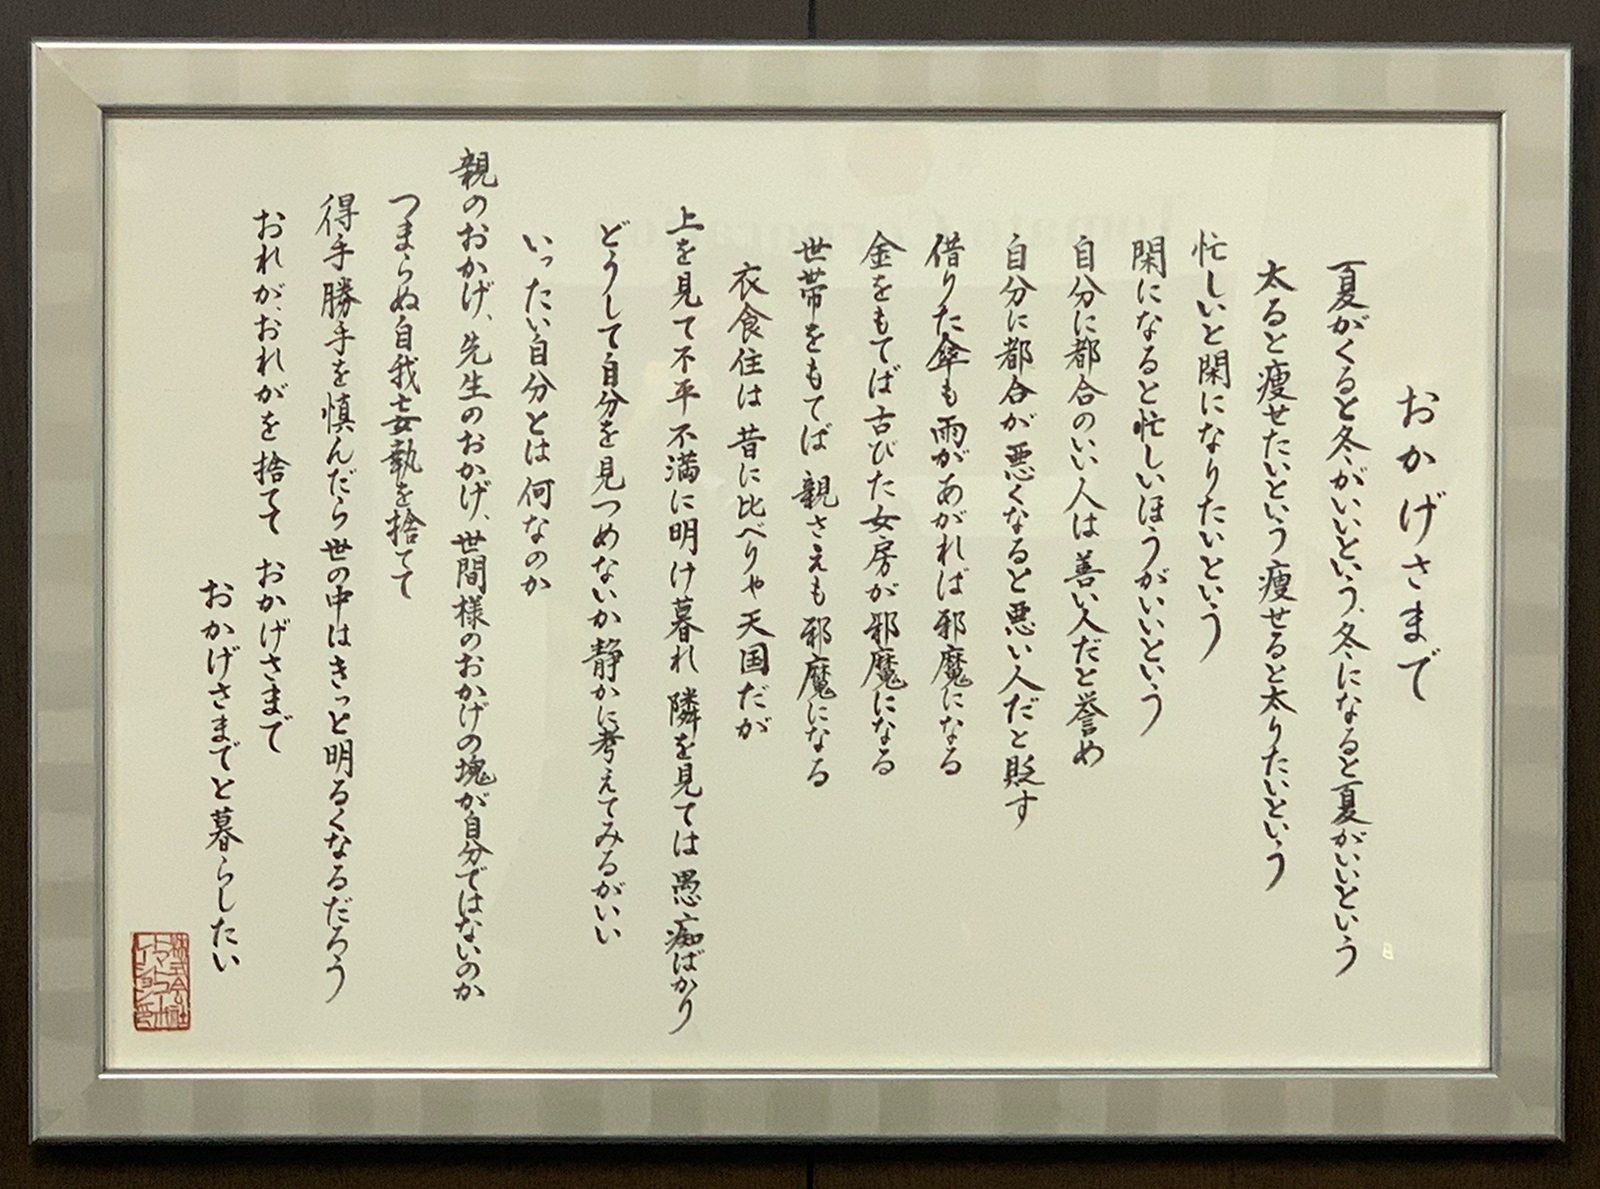 おかげさまで
夏がくると冬がいいという、冬になると夏がいいという
太ると痩せたいという 痩せると太りたいという
忙しいと閑になりたいという
閑になると忙しいほうがいいという
自分に都合のいい人は善い人だと誉め
自分に都合が悪くなると悪い人だと貶す
借りた傘も雨があがれば邪魔になる
金をもてば古びた女房が邪魔になる
世帯をもてば親さえも邪魔になる
衣食住は昔に比べりゃ天国だが
上を見て不平不満に明け暮れ 隣を見ては愚痴ばかり
どうして自分を見つめないか静かに考えてみるがいい
いったい自分とは何なのか
親のおかげ、先生のおかげ、世間様のおかげの塊が自分ではないのか
つまらぬ自我妄執を捨てて
得手勝手を慎んだら世の中はきっと明るくなるだろう
おれが、おれがを捨てて おかげさまで
おかげさまでと暮らしたい
株式会社
トマトコーポ
レーション印